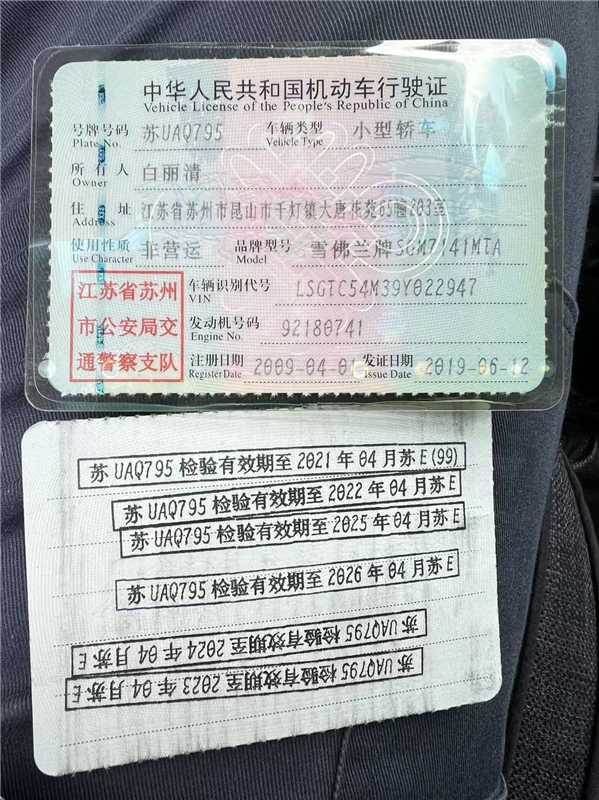 中华人民共和国机动车行驶证
Vehicle License of the People's Republic of China
号牌号码 苏UAQ795 车辆类型 小型轿车
Plate No. Vehicle Type
所有人 白丽清
Owner
住址 江苏省苏州市昆山市千灯镇大唐花苑65幢203室
Address
使用性质 非营运 品牌型号 雪佛兰牌SGM7141MTA
Use Character Model
江苏省苏州 车辆识别代号 LSGTC54M39Y022947
VIN
市公安局交 发动机号码 92180741
Engine No.
通警察支队 注册日期 2009-04-01 发证日期 2019-06-12
Register Date Issue Date
苏UAQ795 检验有效期至 2021 年 04 月苏E(99)
苏UAQ795 检验有效期至 2022 年 04 月苏E
苏UAQ795 检验有效期至 2025 年 04 月苏E
苏UAQ795 检验有效期至 2026 年 04 月苏E
苏UAQ795 检验有效期至 2024 年 04 月苏E
苏UAQ795 检验有效期至 2023 年 04 月苏E